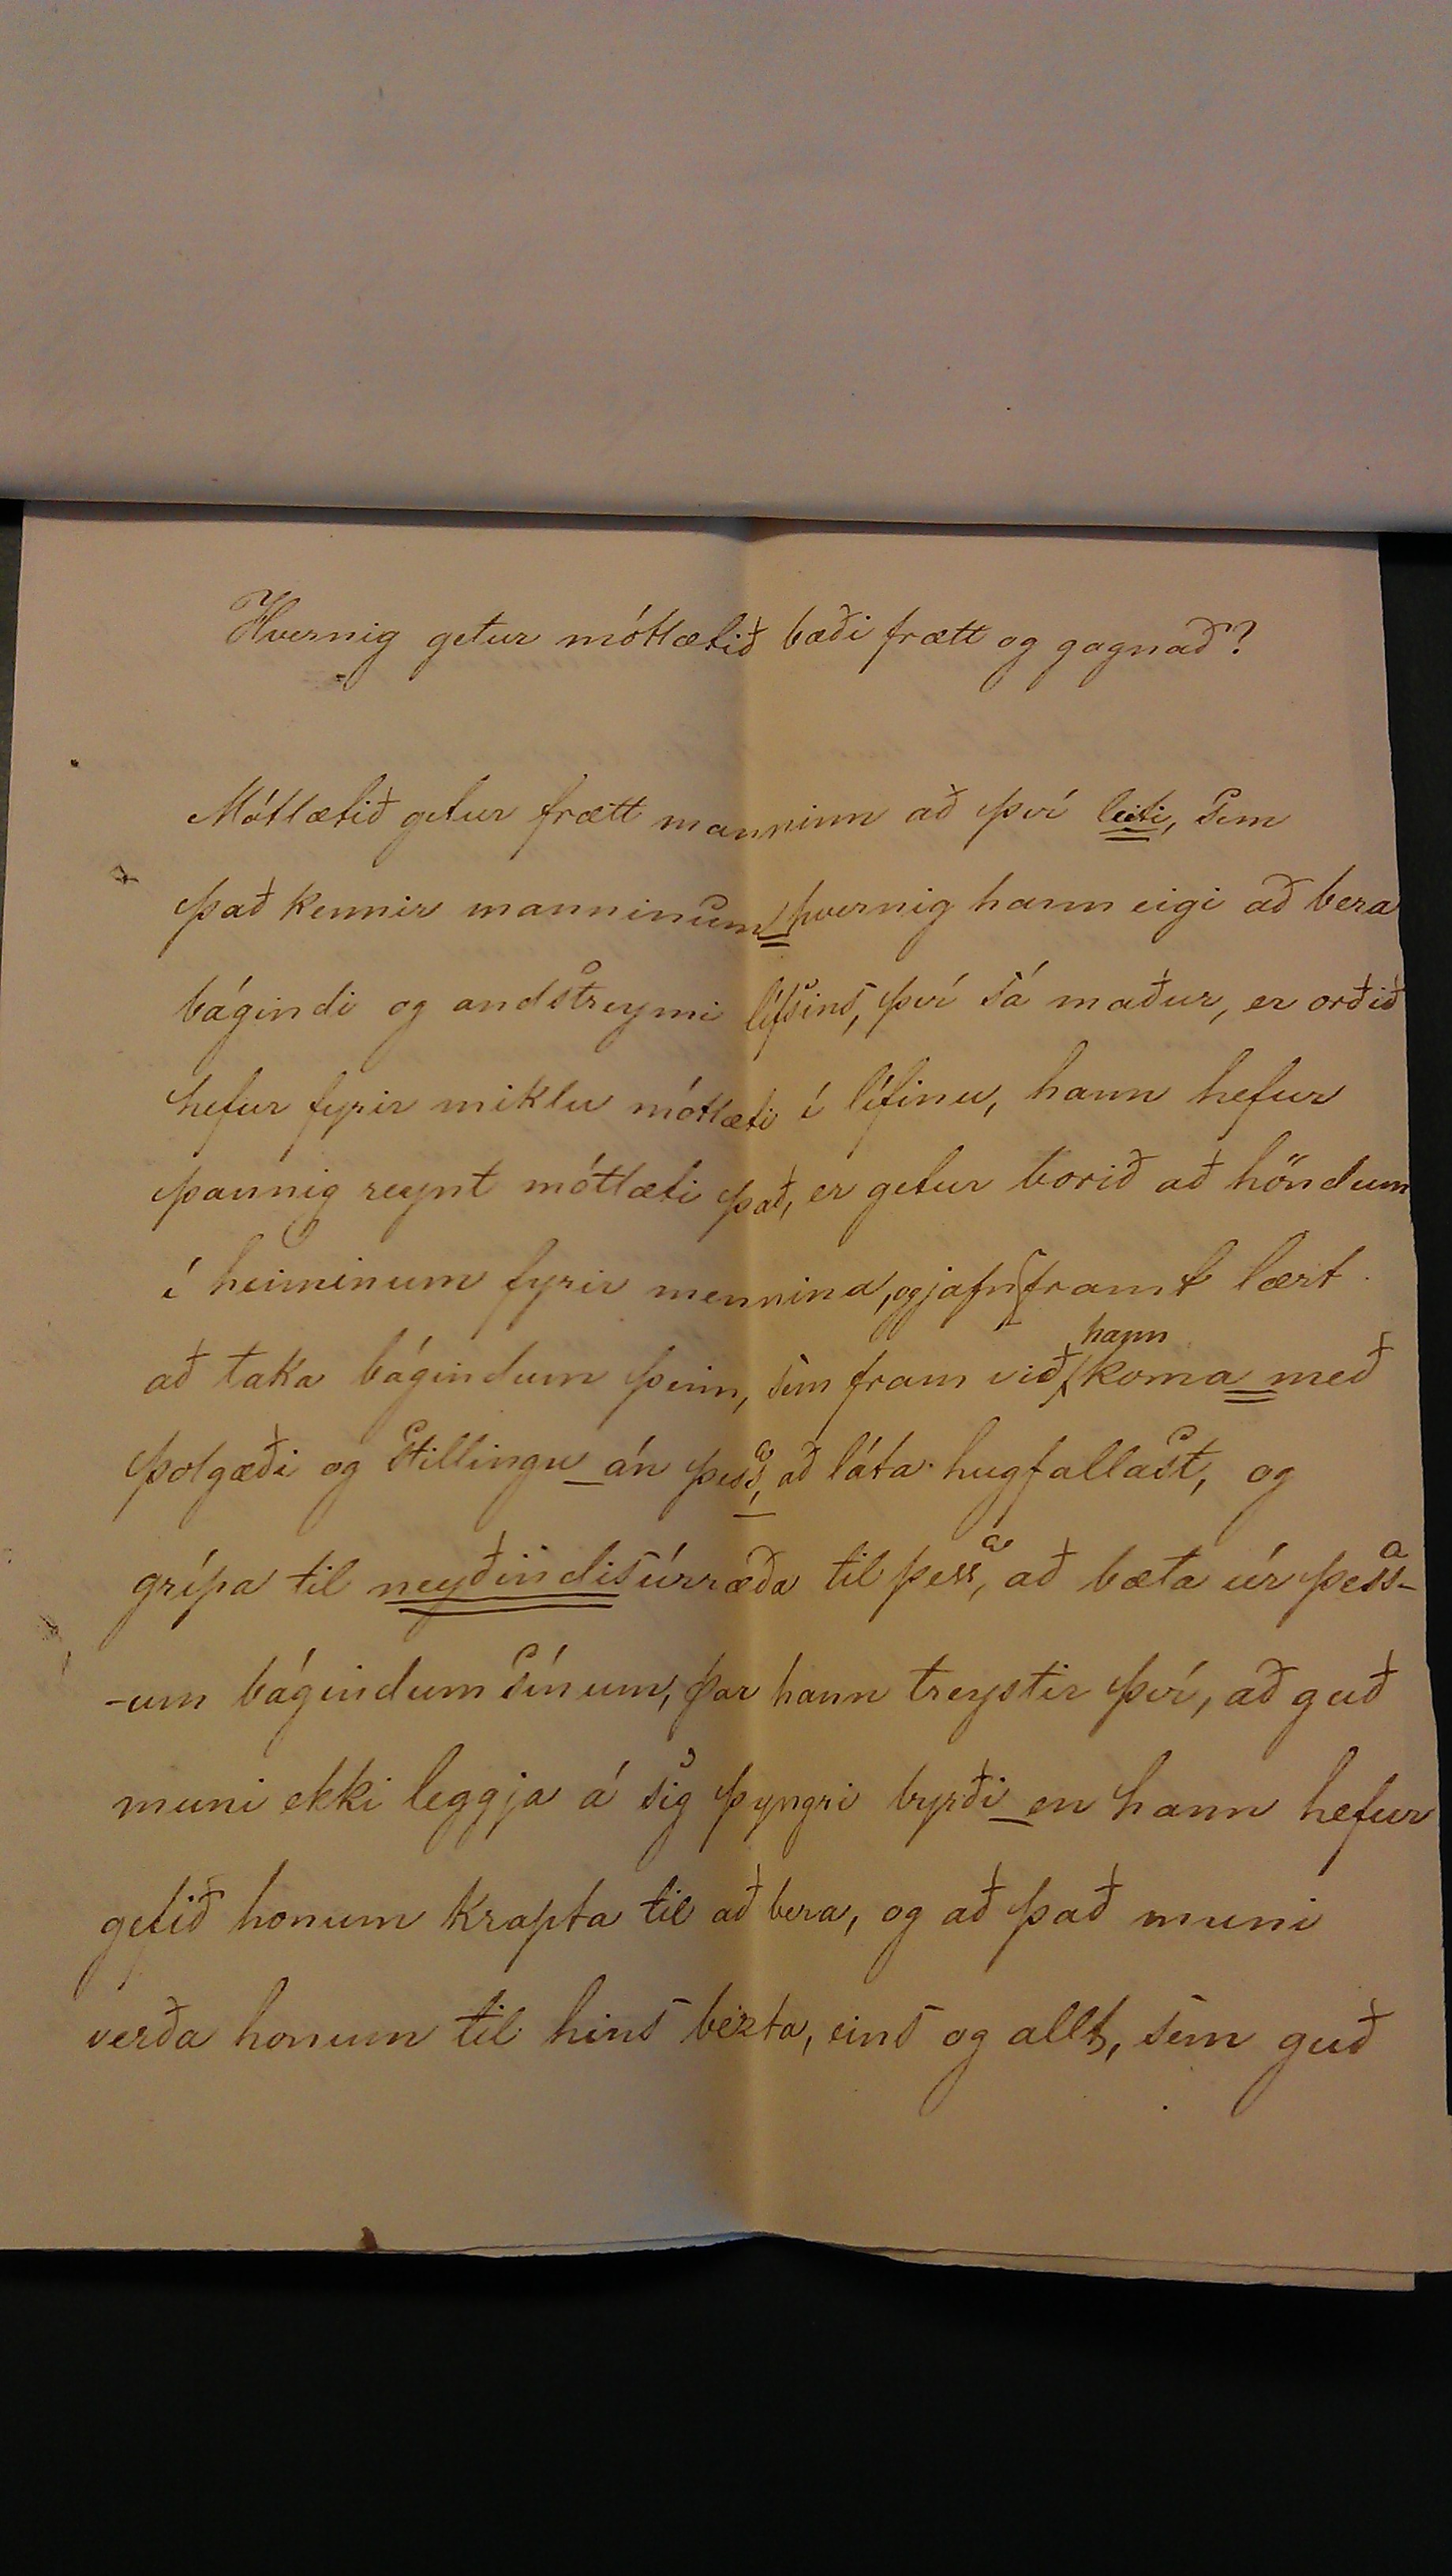 Hvernig getur mótlætið bæði frætt og gagnað?
Mótlætið getur frætt manninn að því leiti, sem
það kennir manninum hvernig hann eigi að bera
bágindi og andstreymi lífsins, því sá maður, er orðið
hefur fyrir miklu mótlæti í lífinu, hann hefur
þannig reynt mótlæti það, er getur borið að höndum
í heiminum fyrir mennina, og jafnframt lært
hann
að taka bágindum þeim, sem fram við koma með
þolgæði og stillingu án þess, að láta hugfallast, og
grípa til neyðindisúrræða til þess, að bæta úr þess-
-um bágindum sínum, þar hann treystir því, að guð
muni ekki leggja á sig þyngri byrði en hann hefur
gefið honum krapta til að bera, og að það muni
verða honum til hins bezta, eins og allt, sem guð